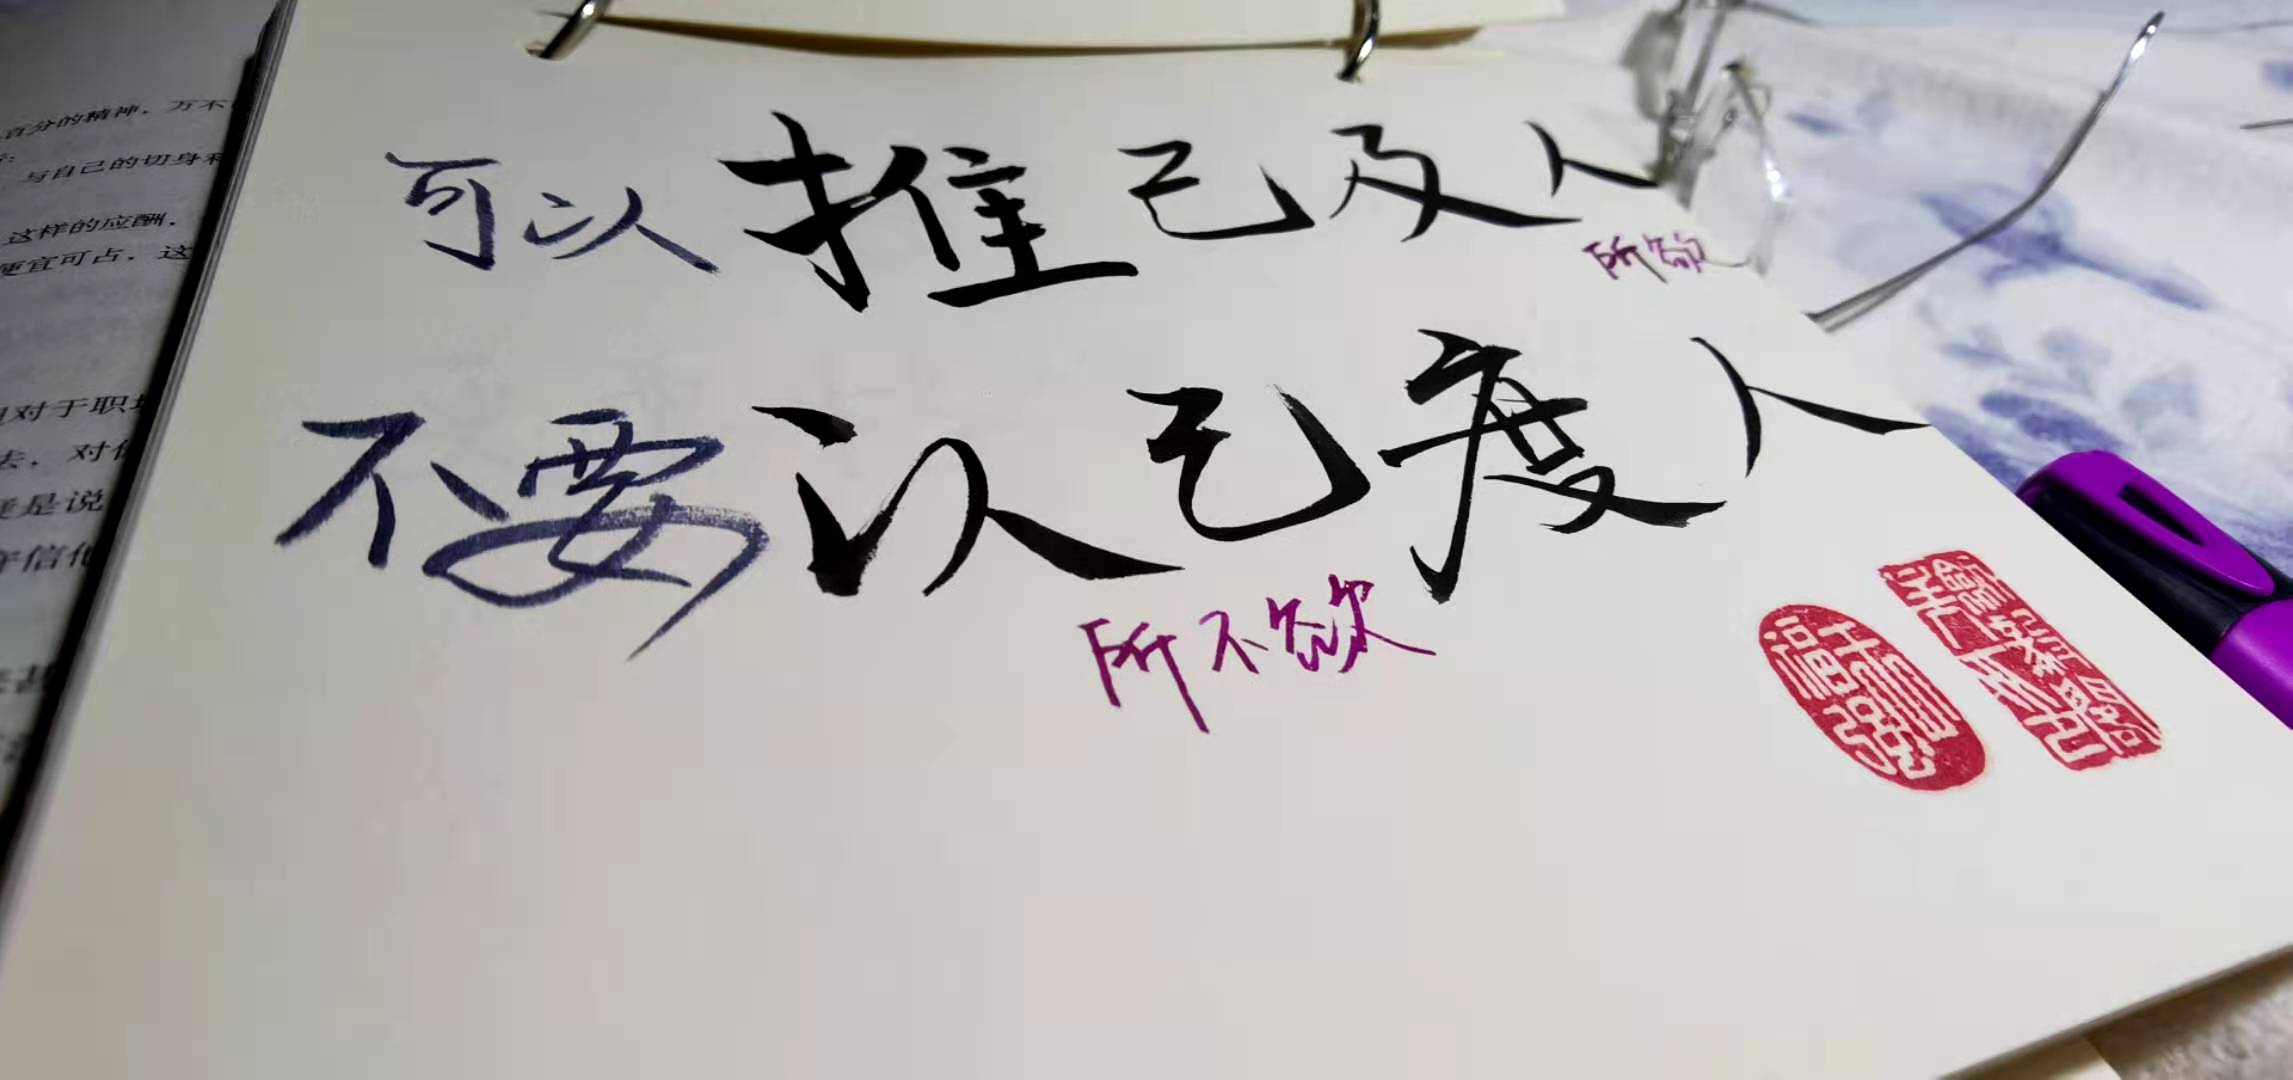 百分的精神，万不
与自己的切身利
这样的应酬，
便宜可占，这
对于职场
去，对
是说
守信
可以推己及人
所欲
不要以己度人
所不欲